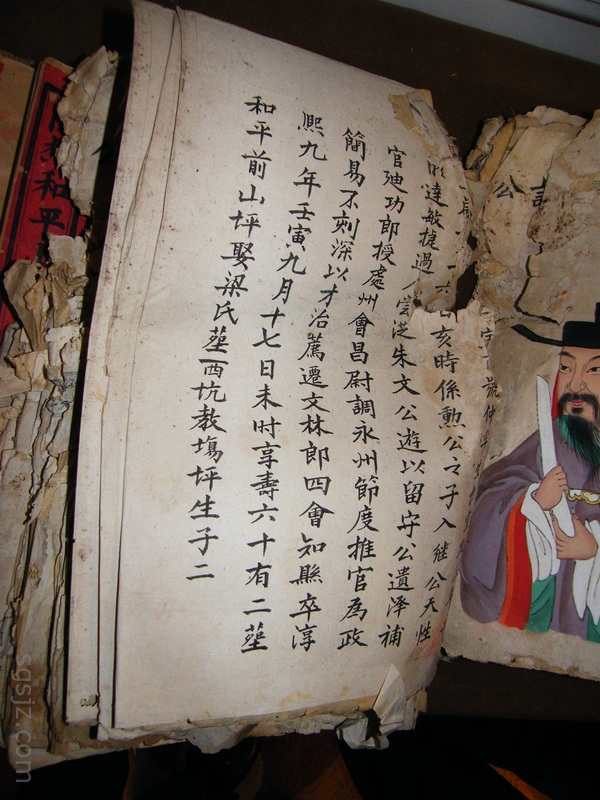 公
號仲
亥時係勲公之子入継公天性
達敏捷過
朱文公遊以留守公遺澤補
官廸功郎授處州會昌尉調永州節度推官為政
簡易不刻深以才治薦遷文林郎四會知縣卒淳
熙九年壬寅九月十七日未时享壽六十有二塟
和平前山坪娶梁氏塟西坑教塲坪生子二
和平
sgsjz.com